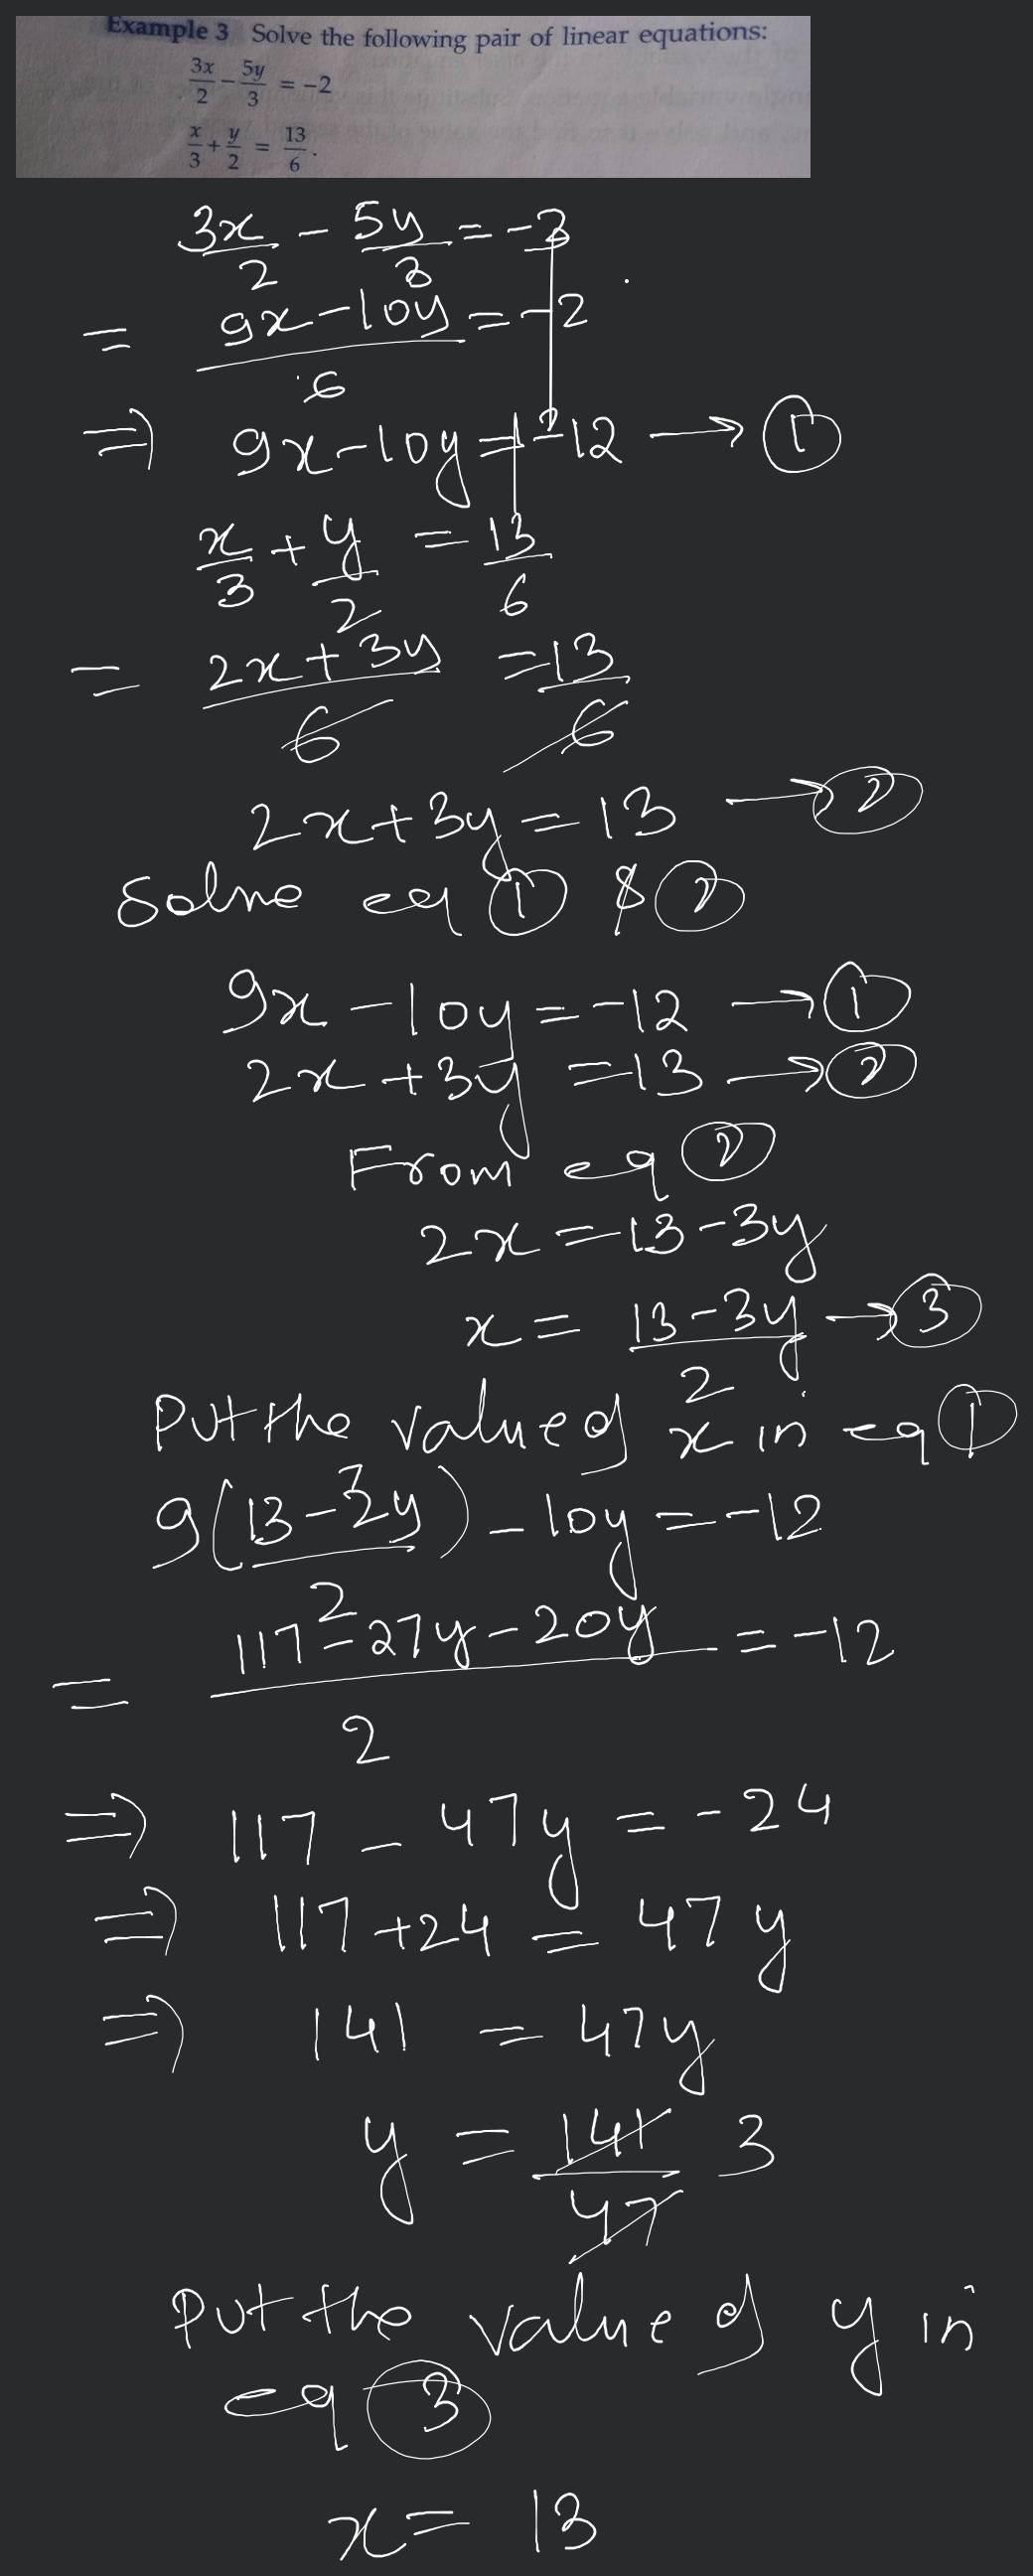 Example 3 Solve the following pair of linear equations:
3x/2 - 5y/3 = -2
x/3 + y/2 = 13/6.
3x/2 - 5y/3 = -2
= (9x-10y)/6 = -2
⇒ 9x-10y = -12 → ①
x/3 + y/2 = 13/6
= (2x+3y)/6 = 13/6
2x+3y = 13 → ②
Solve eq ① & ②
9x-10y = -12 → ①
2x+3y = 13 → ②
From eq ②
2x = 13-3y
x = (13-3y)/2 → ③
Put the value of x in eq ①
9((13-3y)/2) - 10y = -12
= (117-27y-20y)/2 = -12
⇒ 117 - 47y = -24
⇒ 117+24 = 47y
⇒ 141 = 47y
y = 141/47 3
Put the value of y in
eq ③
x = 13